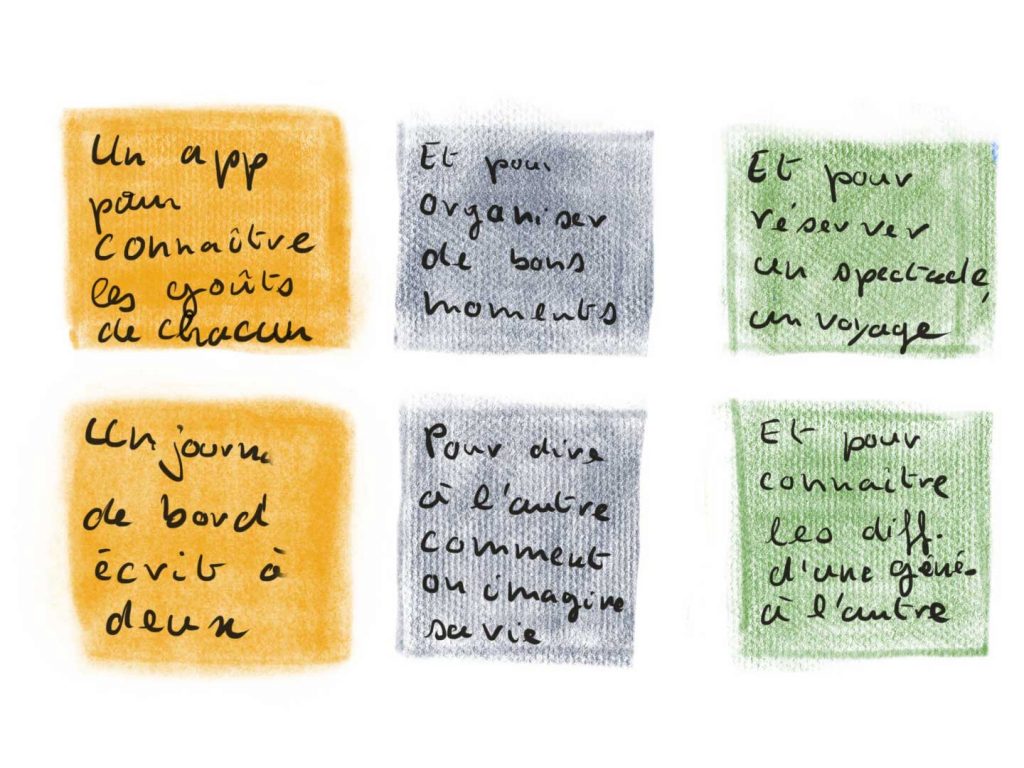 Un app
pour
connaître
les goûts
de chacun
Et pour
organiser
de bons
moments
Et pour
réserver
un spectacle,
un voyage
Un journ
de bord
écrit à
deux
Pour dire
à l'autre
comment
on imagine
sa vie
Et pour
connaître
les diff.
d'une géné-
à l'autre